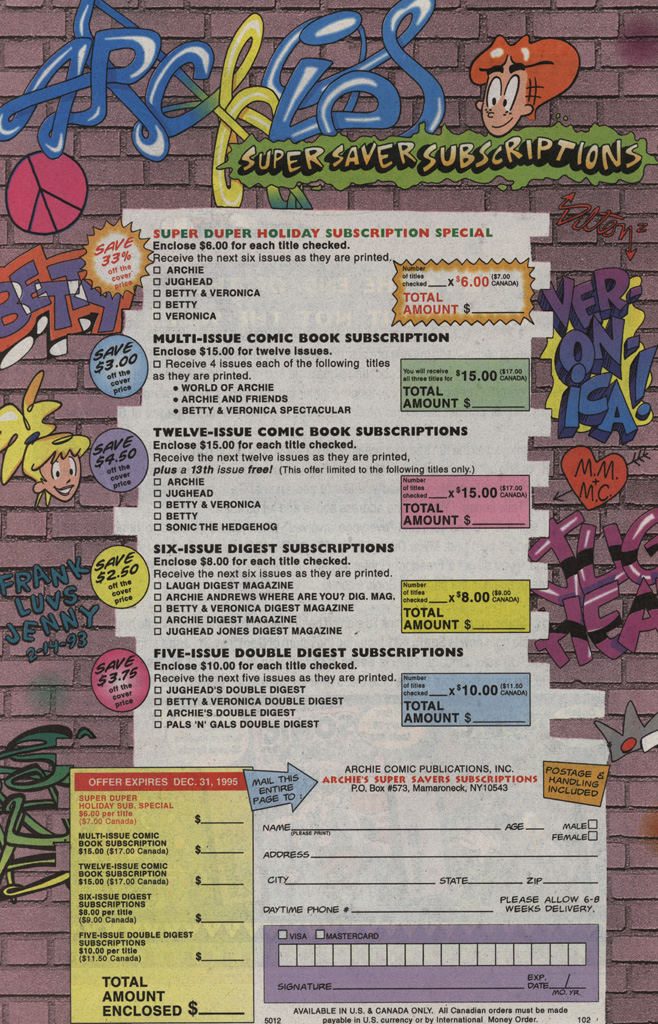 ARCHIE'S
SUPER SAVER SUBSCRIPTIONS
Dilton
BETTY
VER-
ON-
ICA!
M.M.
+
M.C.
JUG
HEAD
FRANK
LUVS
JENNY
2-14-93
SAVE
33%
off the
cover
price
SUPER DUPER HOLIDAY SUBSCRIPTION SPECIAL
Enclose $6.00 for each title checked.
Receive the next six issues as they are printed.
☐ ARCHIE
☐ JUGHEAD
☐ BETTY & VERONICA
☐ BETTY
☐ VERONICA
Number
of titles
checked ___ x $6.00 ($7.00 CANADA)
TOTAL
AMOUNT $______
SAVE
$3.00
off the
cover
price
MULTI-ISSUE COMIC BOOK SUBSCRIPTION
Enclose $15.00 for twelve issues.
☐ Receive 4 issues each of the following titles
as they are printed.
• WORLD OF ARCHIE
• ARCHIE AND FRIENDS
• BETTY & VERONICA SPECTACULAR
You will receive
all three titles for $15.00 ($17.00 CANADA)
TOTAL
AMOUNT $______
SAVE
$4.50
off the
cover
price
TWELVE-ISSUE COMIC BOOK SUBSCRIPTIONS
Enclose $15.00 for each title checked.
Receive the next twelve issues as they are printed,
plus a 13th issue free! (This offer limited to the following titles only.)
☐ ARCHIE
☐ JUGHEAD
☐ BETTY & VERONICA
☐ BETTY
☐ SONIC THE HEDGEHOG
Number
of titles
checked ___ x $15.00 ($17.00 CANADA)
TOTAL
AMOUNT $______
SAVE
$2.50
off the
cover
price
SIX-ISSUE DIGEST SUBSCRIPTIONS
Enclose $8.00 for each title checked.
Receive the next six issues as they are printed.
☐ LAUGH DIGEST MAGAZINE
☐ ARCHIE ANDREWS WHERE ARE YOU? DIG. MAG.
☐ BETTY & VERONICA DIGEST MAGAZINE
☐ ARCHIE DIGEST MAGAZINE
☐ JUGHEAD JONES DIGEST MAGAZINE
Number
of titles
checked ___ x $8.00 ($9.00 CANADA)
TOTAL
AMOUNT $______
SAVE
$3.75
off the
cover
price
FIVE-ISSUE DOUBLE DIGEST SUBSCRIPTIONS
Enclose $10.00 for each title checked.
Receive the next five issues as they are printed.
☐ JUGHEAD'S DOUBLE DIGEST
☐ BETTY & VERONICA DOUBLE DIGEST
☐ ARCHIE'S DOUBLE DIGEST
☐ PALS 'N' GALS DOUBLE DIGEST
Number
of titles
checked ___ x $10.00 ($11.50 CANADA)
TOTAL
AMOUNT $______
OFFER EXPIRES DEC. 31, 1995
SUPER DUPER
HOLIDAY SUB. SPECIAL
$6.00 per title
($7.00 Canada) $______
MULTI-ISSUE COMIC
BOOK SUBSCRIPTION
$15.00 ($17.00 Canada) $______
TWELVE-ISSUE COMIC
BOOK SUBSCRIPTION
$15.00 ($17.00 Canada) $______
SIX-ISSUE DIGEST
SUBSCRIPTIONS
$8.00 per title
($9.00 Canada) $______
FIVE-ISSUE DOUBLE DIGEST
SUBSCRIPTIONS
$10.00 per title
($11.50 Canada) $______
TOTAL
AMOUNT
ENCLOSED $______
MAIL THIS
ENTIRE
PAGE TO:
ARCHIE COMIC PUBLICATIONS, INC.
ARCHIE'S SUPER SAVERS SUBSCRIPTIONS
P.O. Box #573, Mamaroneck, NY10543
POSTAGE &
HANDLING
INCLUDED
NAME______ AGE___ MALE☐
(PLEASE PRINT) FEMALE☐
ADDRESS______
CITY______ STATE______ ZIP______
DAYTIME PHONE #______ PLEASE ALLOW 6-8
WEEKS DELIVERY.
☐ VISA ☐ MASTERCARD
SIGNATURE______ EXP. DATE __/__
MO. YR.
AVAILABLE IN U.S. & CANADA ONLY. All Canadian orders must be made
5012 payable in U.S. currency or by International Money Order. 102